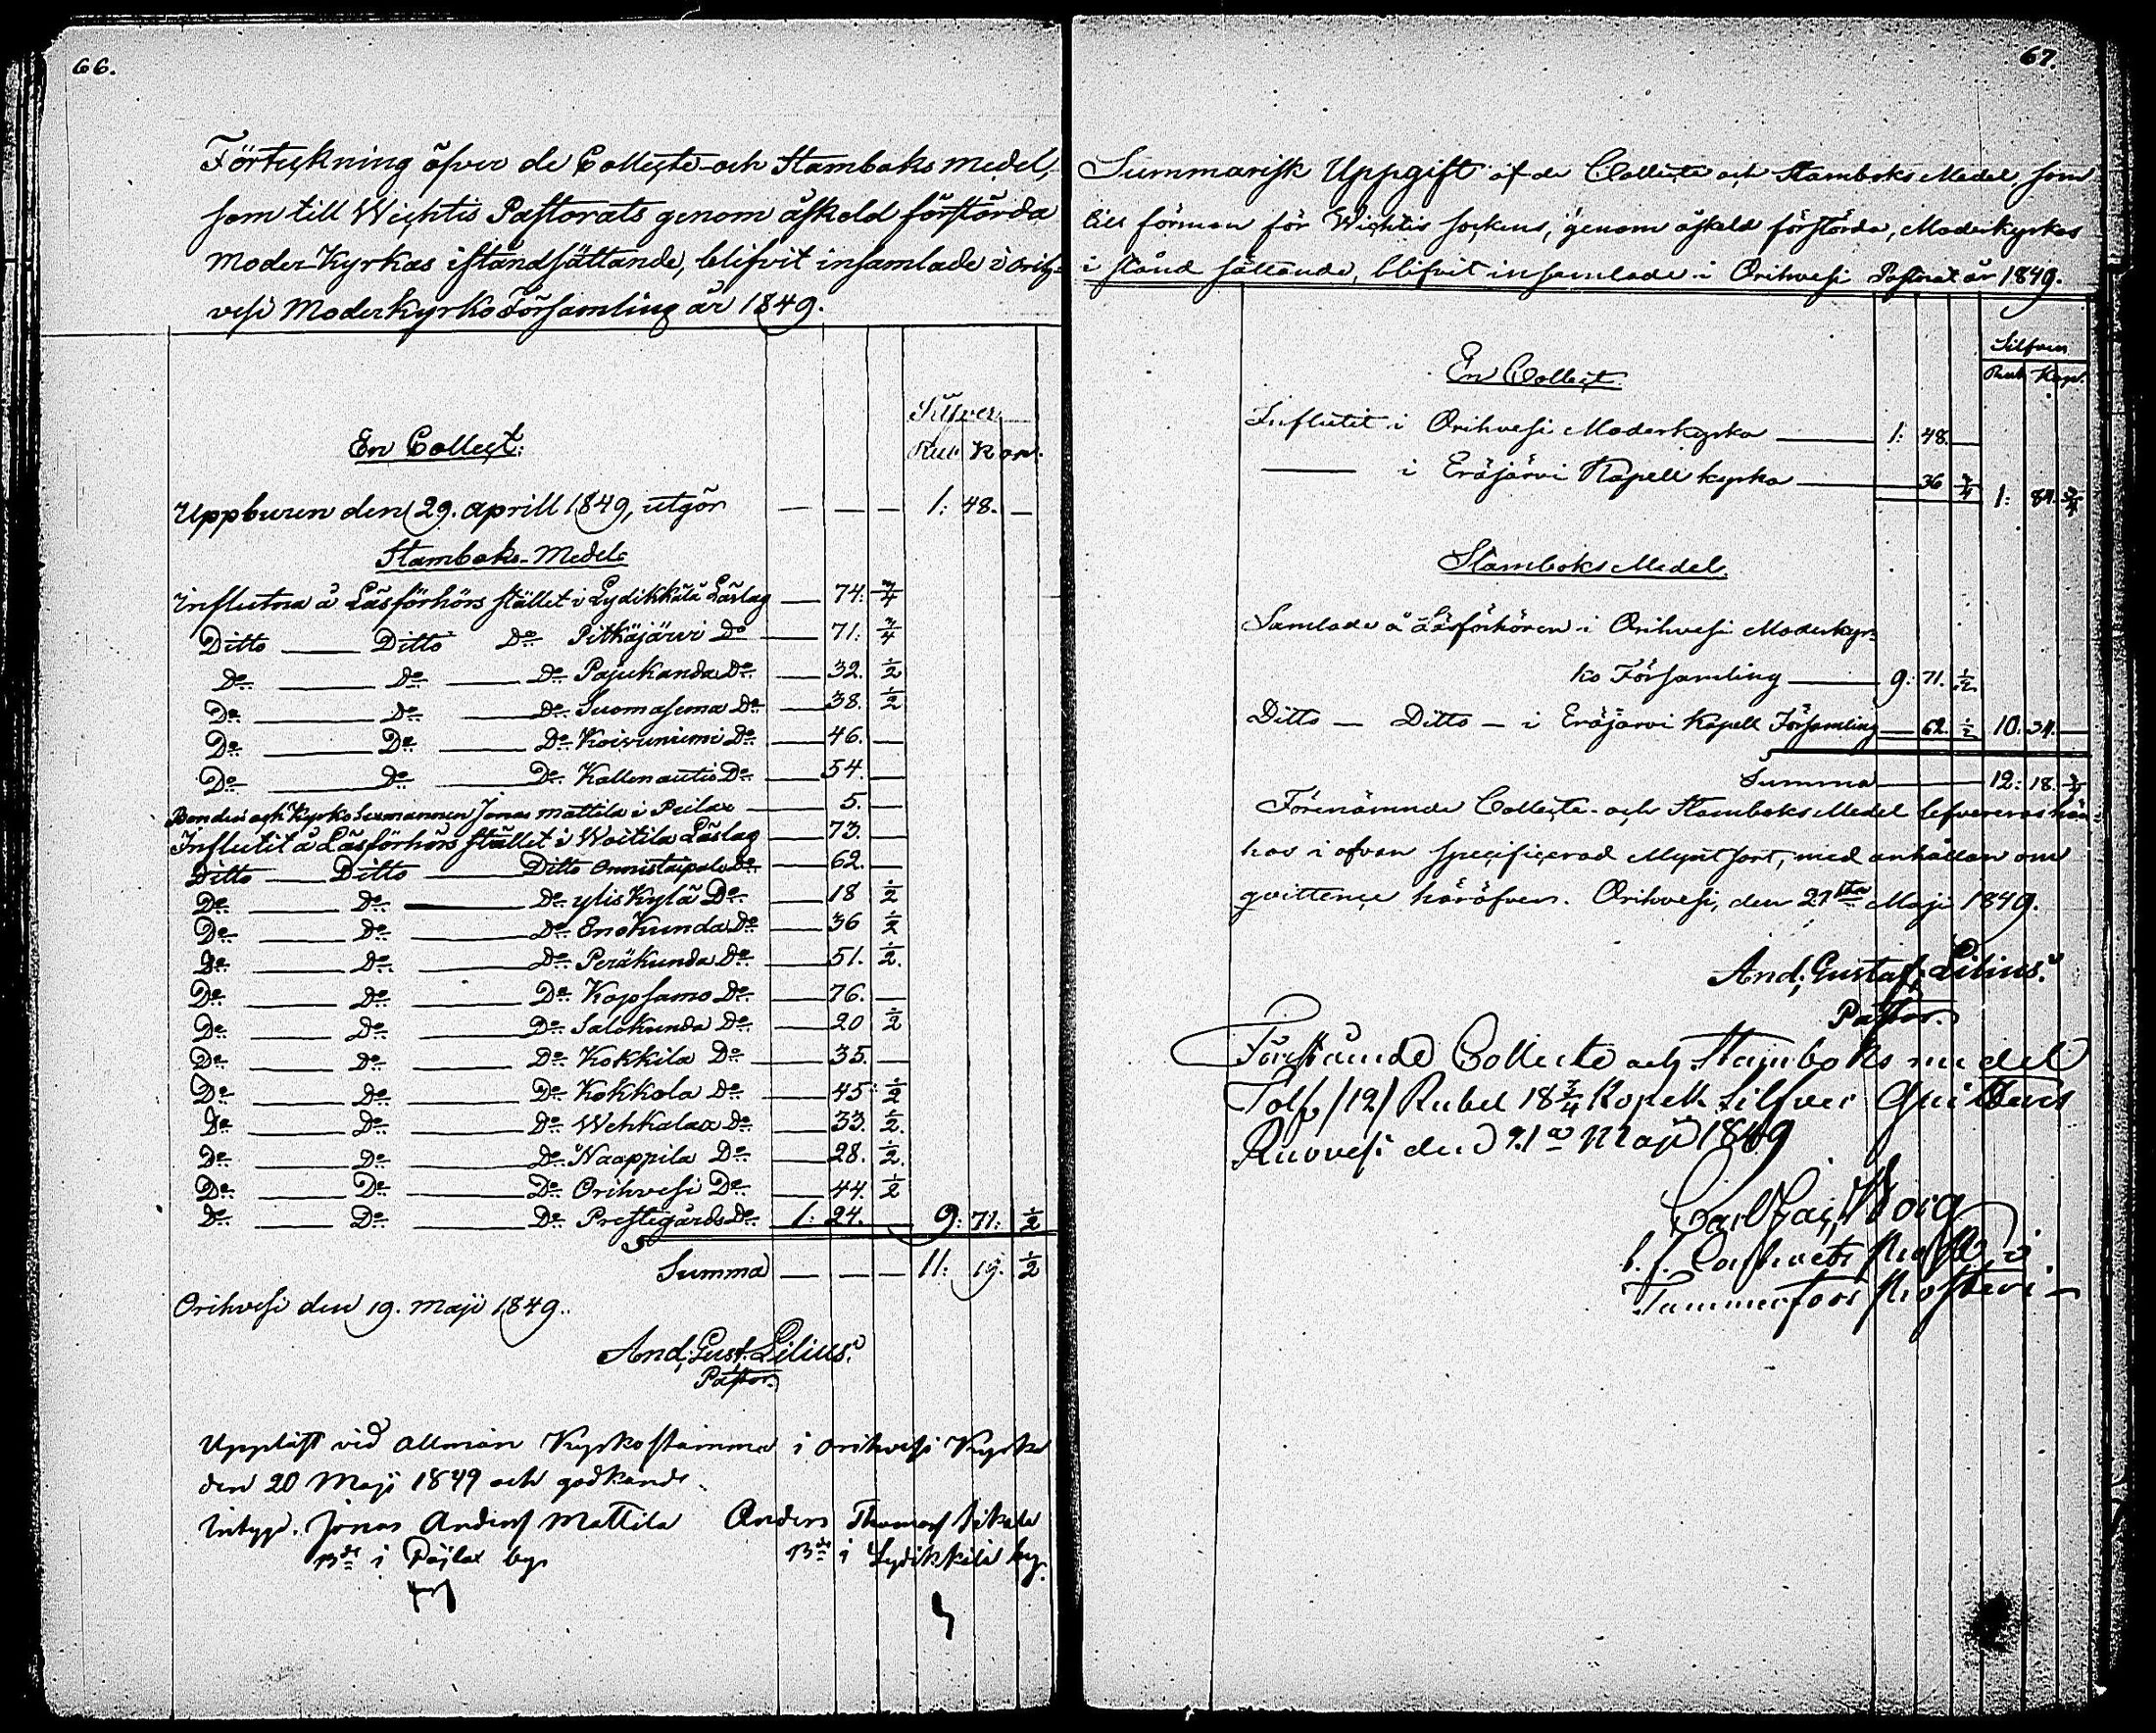 66.
Förteckning öfver de Collecte- och Stamboks medel,
som till Wichtis Pastorats genom åskeld förstörda
Moder-Kyrkas iståndsättande, blifvit insamlade i Orih-
vesi ModerkyrkoFörsamling år 1849.
Silfver
En Collect: Rub. Kop.
Uppburen den 29. aprill 1849, utgör — — — 1: 48. —
Stamboks-Medel:
Influtna å Läsförhörs stället i Lydikkälä Läslag — 74. 3/4
Ditto — Ditto Do Pitkäjärvi Do — 71: 3/4
Do — Do — Do Pajukanda Do — 32. 1/2
Do — Do — Do Suomasema Do — 38. 1/2
Do — Do — Do Koivuniemi Do — 46. —
Do — Do — Do Kallenautio Do — 54. —
Bonden och Kyrko Sexmannen Jonas Mattila i Peilax — 5. —
Influtit å Läsförhörs stället i Woitila Läslag — 73. —
Ditto — Ditto — Ditto Onnistaipale Do — 62. —
Do — Do — Do ylis Kylä Do — 18 1/2
Do — Do — Do Enokunda Do — 36 1/2
Do — Do — Do Peräkunda Do — 51. 1/2.
Do — Do — Do Kopsamo Do — 76. —
Do — Do — Do Salokunda Do — 20 1/2
Do — Do — Do Kokkila Do — 35. —
Do — Do — Do Kokkola Do — 45: 1/2
Do — Do — Do Wehkalax Do — 33. 1/2.
Do — Do — Do Naappila Do — 28. 1/2.
Do — Do — Do Orihvesi Do — 44. 1/2
Do — Do — Do Prestegårds Do 1: 24. — 9: 71: 1/2
Summa — — — 11: 19. 1/2
Orihvesi den 19. Maji 1849.
And. Gust. Lilius.
Pastor.
Uppläst vid allmän Kyrkostämma i Orihvesi Kyrka
den 20 Maji 1849 och godkänds.
Intyga. Jonas Anderss Mattila Anders Thomass
Bde i Päjlax by Bde i Lydikkälä by.
67.
Summarisk Uppgift af de Collecte och Stamboks Medel, som
till förmon för Wichtis sockens, genom åskeld förstörda, Moderkyrkas
i stånd sättande, blifvit insamlade i Orihvesi Pastorat år 1849.
Silfver
En Collect. Rub. Kop.
Influtit i Orihvesi Moderkyrka — 1: 48. —
— i Eräjärvi Kapell kyrka — 36 3/4 1: 84. 3/4
Stamboks Medel.
Samlade å Läsförhören i Orihvesi Moderkyr-
ko Församling — 9: 71. 1/2
Ditto — Ditto — i Eräjärvi Kapell Församling — 62. 1/2 10: 34. —
Summa — 12: 18. 3/4
Förenämnde Collecte- och Stamboks Medel lefvereras här
hos i ofvan specificerad Myntsort, med anhållan om
qvittence häröfver. Orihvesi, den 21sta Maji 1849.
And. Gustaf Lilius.
Pastor.
Förestående Collecte och Stamboks medel
Tolf /12/ Rubel 18 3/4 Kopek Silfver Quitteras
Ruovesi den 21a Maji 1849
Borg
Tammerfors Prosteri